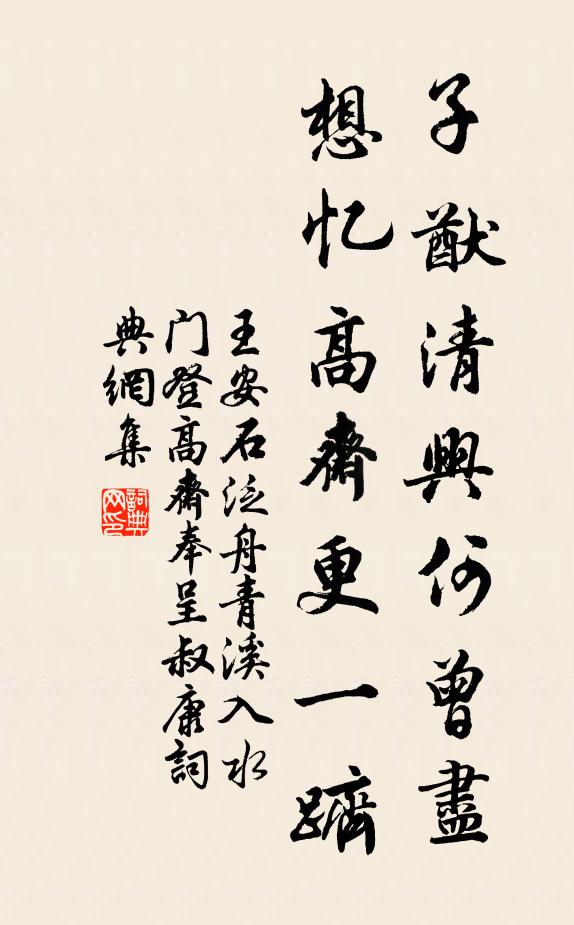 子猷清興何曾盡
想忆高齋更一躋
王安石泛舟青溪入水
门登高齋奉呈叔康詞
典網集
詞典网印